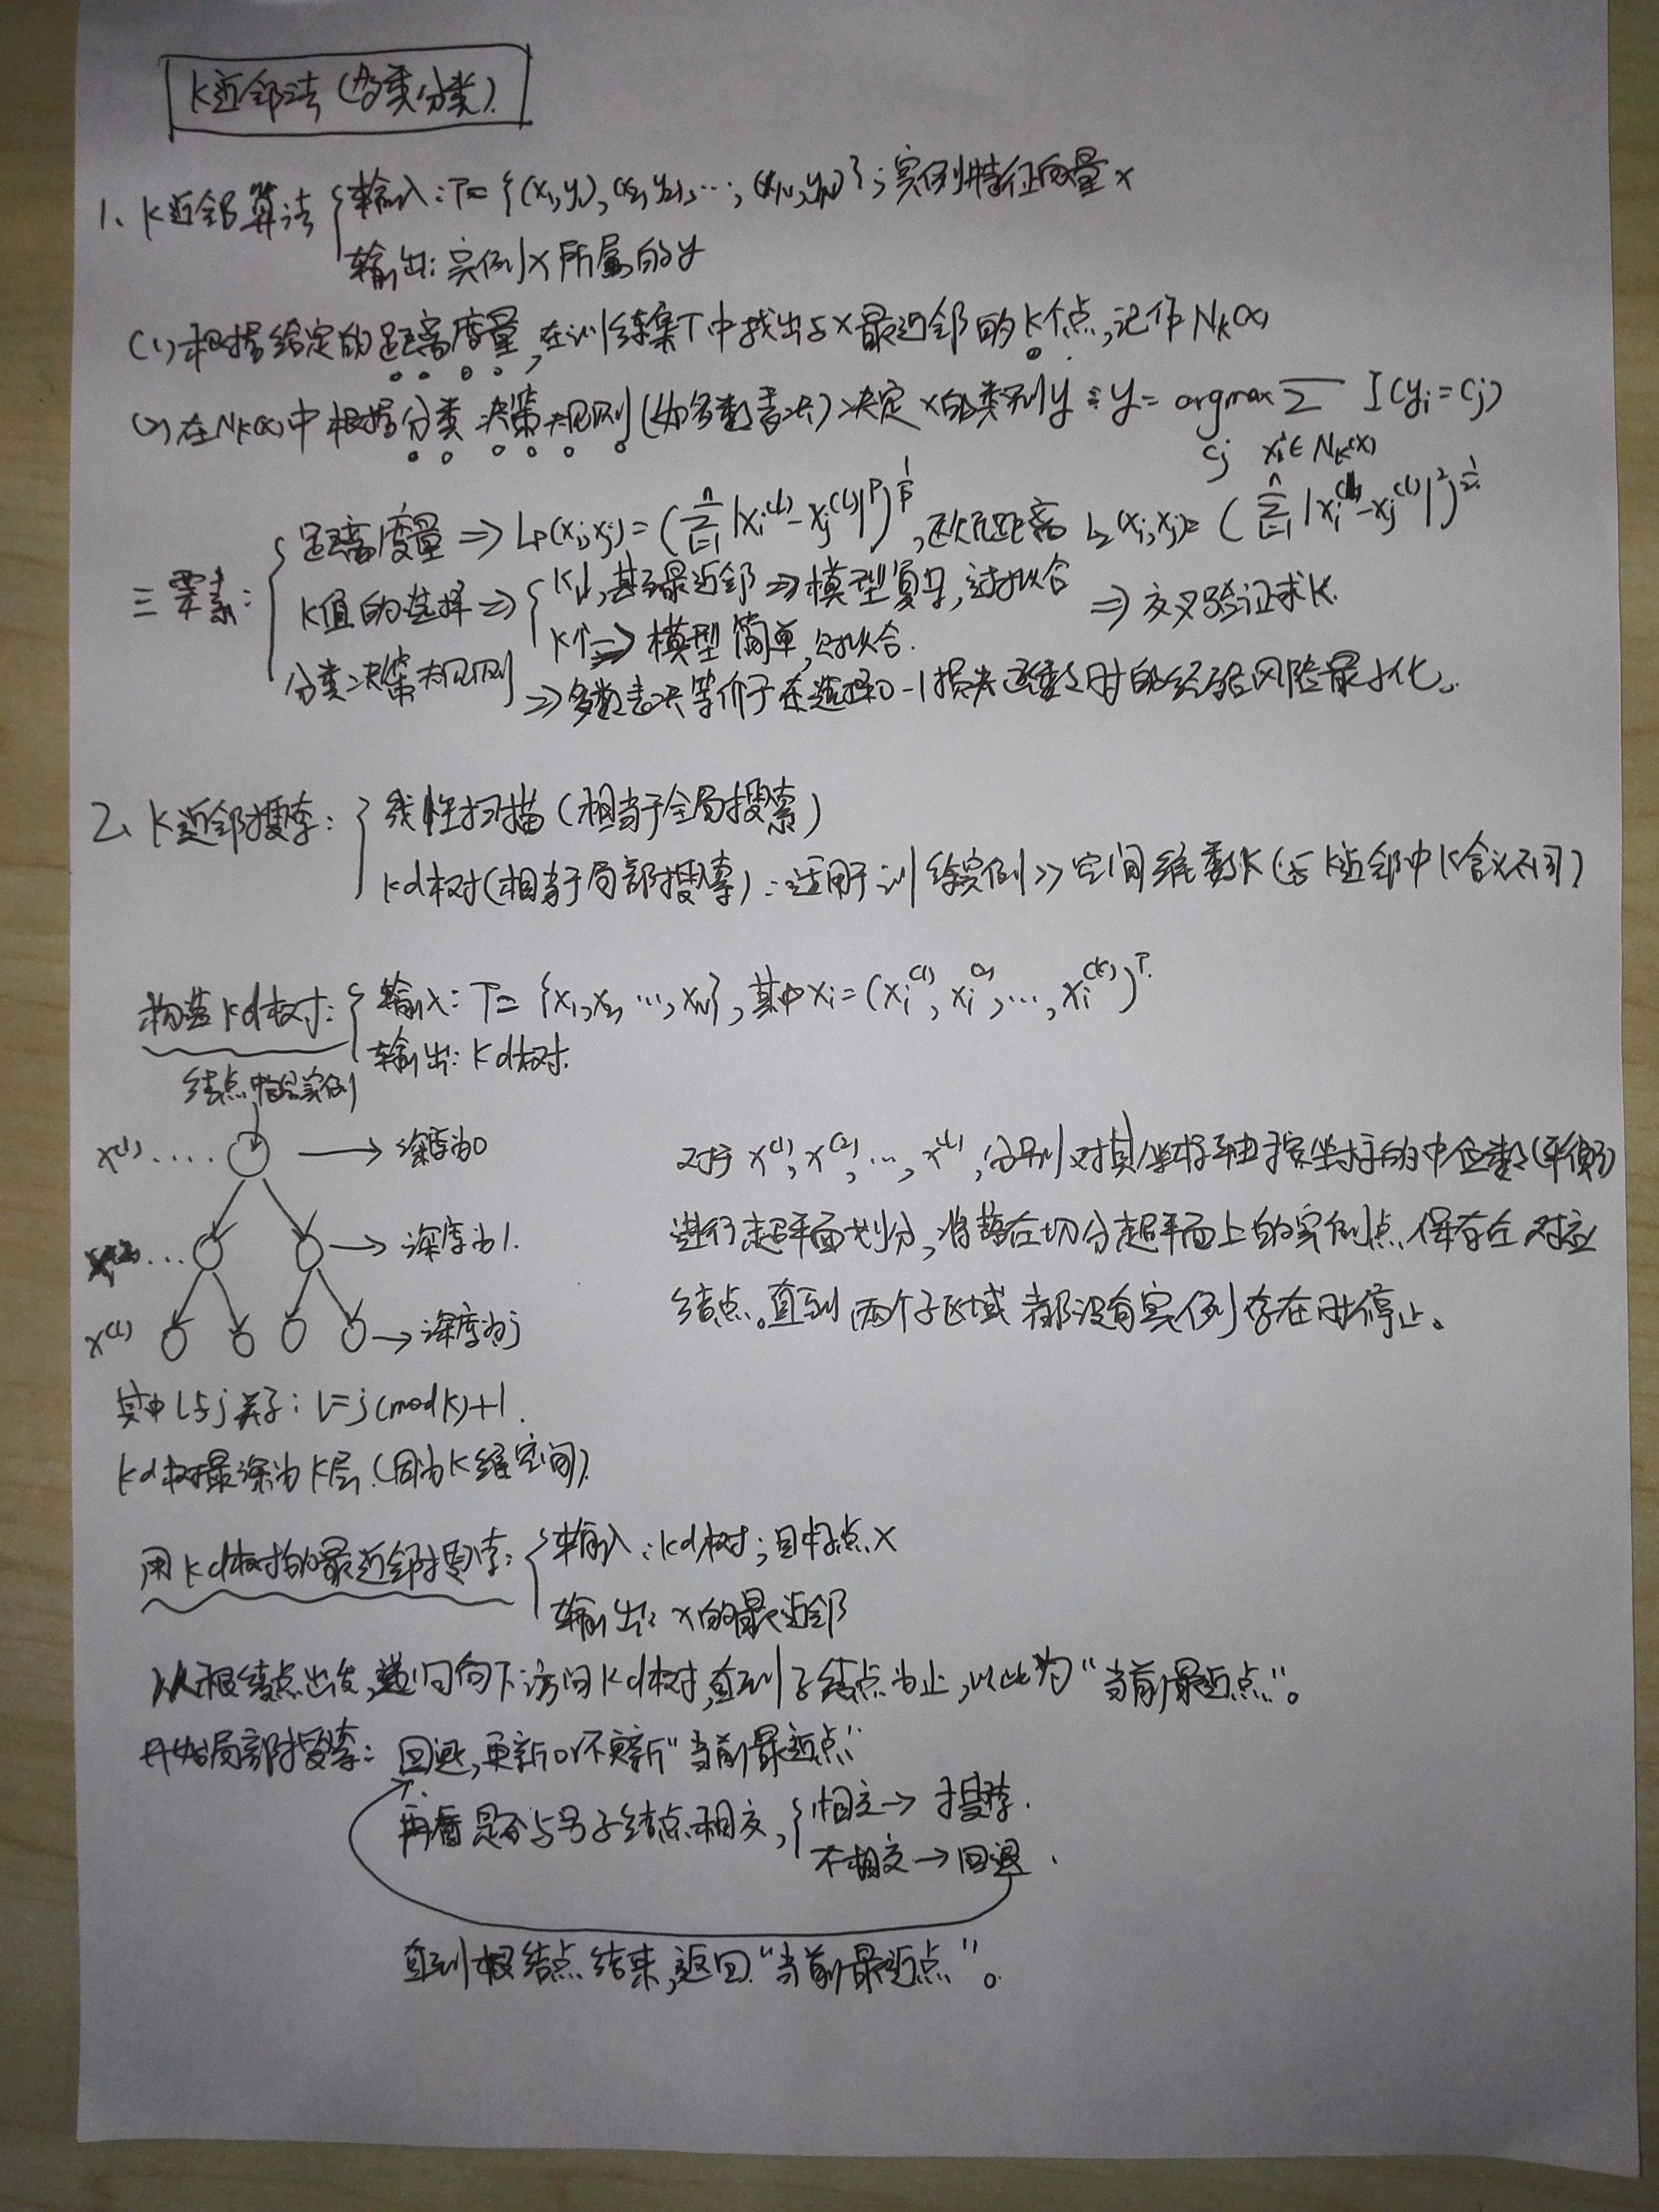 K近邻法(多类分类).
1、K近邻算法 { 输入:T={(x₁,y₁),(x₂,y₂),…,(x_N,y_N)};实例特征向量x
输出:实例x所属的y
(1)根据给定的距离度量,在训练集T中找出与x最近邻的k个点,记作N_k(x)
(2)在N_k(x)中根据分类决策规则(如多数表决)决定x的类别y:y=argmax_{c_j} Σ_{x_i∈N_k(x)} I(y_i=c_j)
三要素:
距离度量⇒L_p(x_i,x_j)=(Σ_{l=1}^n |x_i^{(l)}-x_j^{(l)}|^p)^{1/p},欧氏距离 L₂(x_i,x_j)=(Σ_{l=1}^n |x_i^{(l)}-x_j^{(l)}|²)^{1/2}
K值的选择⇒ { K↓,甚至最近邻⇒模型复杂,过拟合 ⇒交叉验证求K.
K↑⇒模型简单,欠拟合.
分类决策规则⇒多数表决等价于在选择0-1损失函数时的经验风险最小化。
2、K近邻搜索: { 线性扫描(相当于全局搜索)
kd树(相当于局部搜索):适用于训练实例>>空间维数K(与K近邻中K含义不同)
构造kd树: { 输入:T={x₁,x₂,…,x_N},其中x_i=(x_i^{(1)},x_i^{(2)},…,x_i^{(k)})^T.
输出:kd树.
结点中是实例
x^{(1)}.... → 深度为0
x^{(2)}... → 深度为1.
x^{(l)} → 深度为j
对于x^{(1)},x^{(2)},…,x^{(l)},分别对其坐标轴按坐标的中位数(平衡)
进行超平面划分,将落在切分超平面上的实例点保存在对应
结点。直到两个子区域都没有实例存在时停止。
其中l与j关系:l=j(modk)+1.
kd树最深为K层.(因为K维空间).
用kd树的最近邻搜索: { 输入:kd树;目标点x
输出:x的最近邻
从根结点出发,递归向下访问kd树,直到子结点为止,以此为“当前最近点”。
开始局部搜索:回退,更新or不更新“当前最近点”
再看是否与另子结点相交, { 相交→搜索.
不相交→回退.
直到根结点结束,返回“当前最近点”。